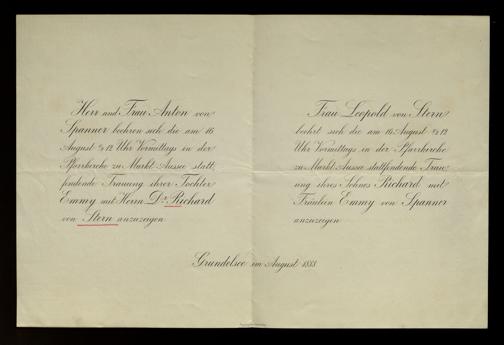 Herr und Frau Anton von
Spanner beehren sich die am 16
August ½12 Uhr Vormittags in der
Pfarrkirche zu Markt-Aussee statt-
findende Trauung ihrer Tochter
Emmy mit Herrn Dr. Richard
von Stern anzuzeigen
Frau Leopold von Stern
beehrt sich die am 16 August ½12
Uhr Vormittags in der Pfarrkirche
zu Markt-Aussee stattfindende Trau-
ung ihres Sohnes Richard mit
Fräulein Emmy von Spanner
anzuzeigen
Grundelsee im August